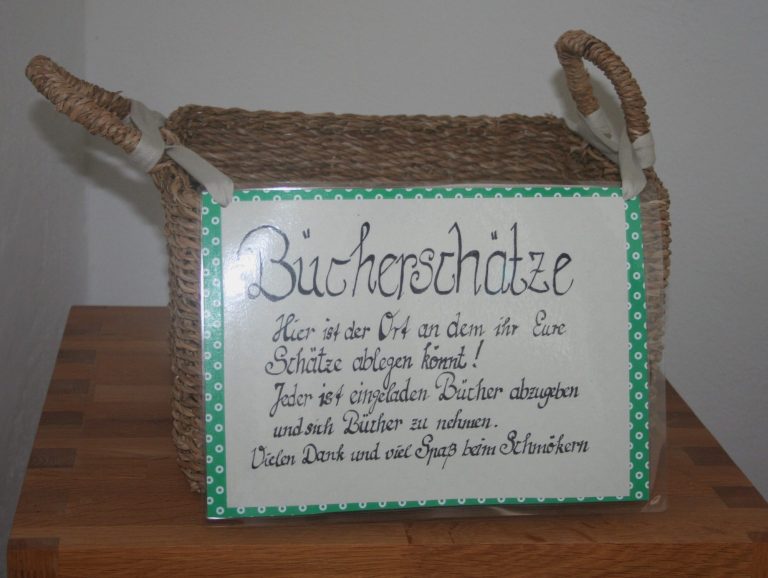 Bücherschätze
Hier ist der Ort an dem ihr Eure
Schätze ablegen könnt!
Jeder ist eingeladen Bücher abzugeben
und sich Bücher zu nehmen.
Vielen Dank und viel Spaß beim Schmökern